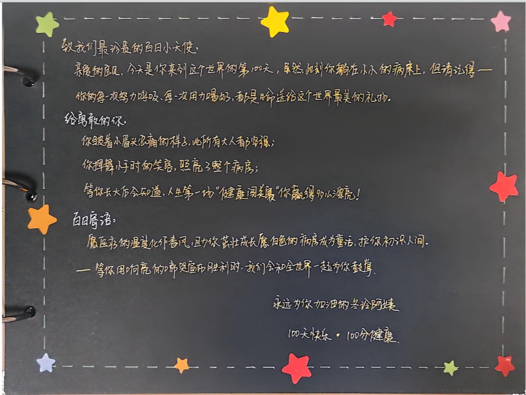 致我们最珍贵的百日小天使。
亲爱的宝贝，今天是你来到这个世界的第100天，虽然此刻你躺在小小的病床上，但请记得——
你的每一次努力呼吸、每一次用力喝奶，都是你送给这个世界最美的礼物。
给勇敢的你：
你皱着小眉头忍痛的样子，比所有大人都坚强；
你挥舞小手时的笑容，照亮了整个病房；
等你长大后会知道，人生第一场"健康闯关赛"你赢得多么漂亮！
百日寄语：
愿医者的温柔化作春风，边护你茁壮成长，愿白色的病房成为童话，护你初识人间。
——等你用响亮的啼哭宣布胜利时，我们会和全世界一起为你鼓掌。
永远为你加油的
100天快乐·100分健康